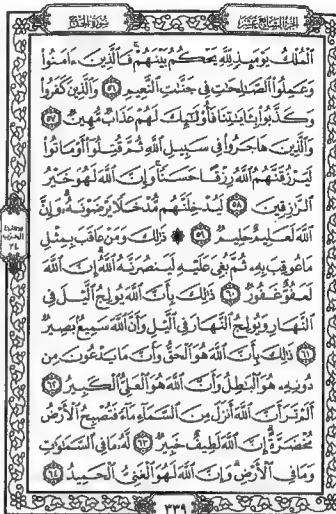 الجزء السابع عشر
سورة الحج
ٱلْمُلْكُ يَوْمَئِذٍ لِّلَّهِ يَحْكُمُ بَيْنَهُمْ فَٱلَّذِينَ ءَامَنُوا۟
وَعَمِلُوا۟ ٱلصَّـٰلِحَـٰتِ فِى جَنَّـٰتِ ٱلنَّعِيمِ ٥٦ وَٱلَّذِينَ كَفَرُوا۟
وَكَذَّبُوا۟ بِـَٔايَـٰتِنَا فَأُو۟لَـٰٓئِكَ لَهُمْ عَذَابٌ مُّهِينٌ ٥٧
وَٱلَّذِينَ هَاجَرُوا۟ فِى سَبِيلِ ٱللَّهِ ثُمَّ قُتِلُوٓا۟ أَوْ مَاتُوا۟
لَيَرْزُقَنَّهُمُ ٱللَّهُ رِزْقًا حَسَنًا وَإِنَّ ٱللَّهَ لَهُوَ خَيْرُ
ٱلرَّٰزِقِينَ ٥٨ لَيُدْخِلَنَّهُم مُّدْخَلًا يَرْضَوْنَهُۥ وَإِنَّ
ٱللَّهَ لَعَلِيمٌ حَلِيمٌ ٥٩ ۞ ذَٰلِكَ وَمَنْ عَاقَبَ بِمِثْلِ
مَا عُوقِبَ بِهِۦ ثُمَّ بُغِىَ عَلَيْهِ لَيَنصُرَنَّهُ ٱللَّهُ إِنَّ ٱللَّهَ
لَعَفُوٌّ غَفُورٌ ٦٠ ذَٰلِكَ بِأَنَّ ٱللَّهَ يُولِجُ ٱلَّيْلَ فِى
ٱلنَّهَارِ وَيُولِجُ ٱلنَّهَارَ فِى ٱلَّيْلِ وَأَنَّ ٱللَّهَ سَمِيعٌۢ بَصِيرٌ
٦١ ذَٰلِكَ بِأَنَّ ٱللَّهَ هُوَ ٱلْحَقُّ وَأَنَّ مَا يَدْعُونَ مِن
دُونِهِۦ هُوَ ٱلْبَـٰطِلُ وَأَنَّ ٱللَّهَ هُوَ ٱلْعَلِىُّ ٱلْكَبِيرُ ٦٢
أَلَمْ تَرَ أَنَّ ٱللَّهَ أَنزَلَ مِنَ ٱلسَّمَآءِ مَآءً فَتُصْبِحُ ٱلْأَرْضُ
مُخْضَرَّةً إِنَّ ٱللَّهَ لَطِيفٌ خَبِيرٌ ٦٣ لَّهُۥ مَا فِى ٱلسَّمَـٰوَٰتِ
وَمَا فِى ٱلْأَرْضِ وَإِنَّ ٱللَّهَ لَهُوَ ٱلْغَنِىُّ ٱلْحَمِيدُ ٦٤
٣٣٩